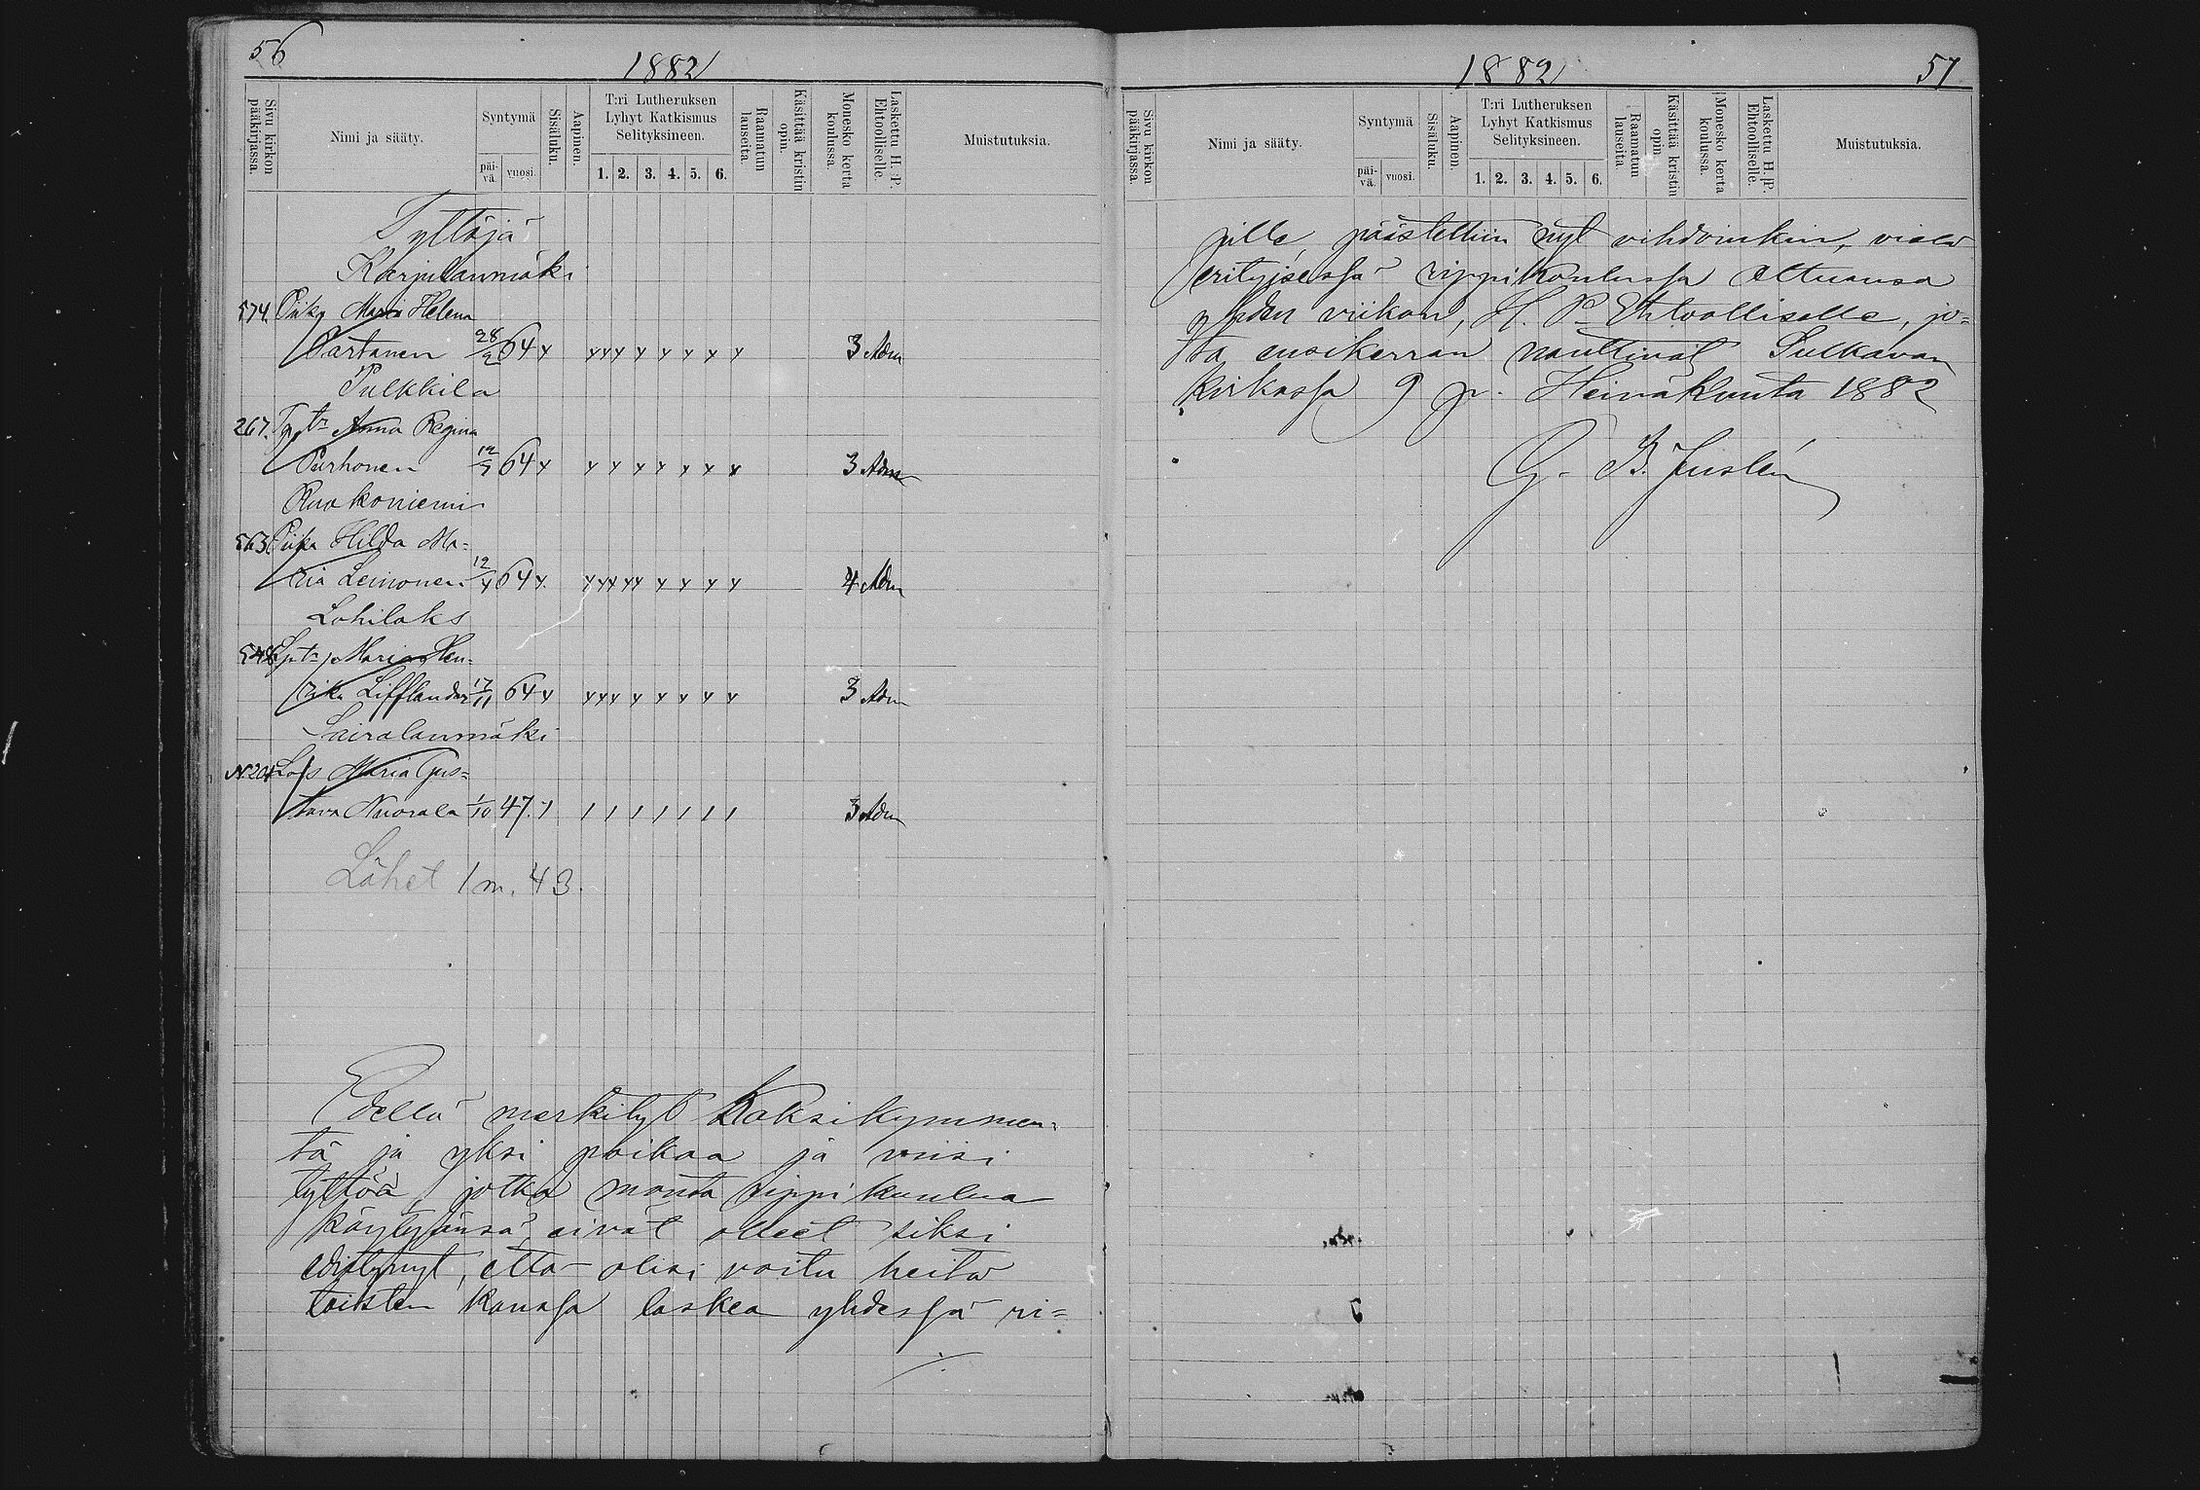 56
1882
Sivu kirkon pääkirjassa.
Nimi ja sääty.
Syntymä
päi-vä.
vuosi.
Sisäluku.
Aapinen.
T:ri Lutheruksen
Lyhyt Katkismus
Selityksineen.
1. 2. 3. 4. 5. 6.
Raamatun lauseita.
Käsittää kristin opin.
Monesko kerta koulussa.
Laskettu H. P. Ehtoolliselle.
Muistutuksia.
Tyttöjä
Karjulanmäki
574. Piika Maria Helena
Partanen 28/2 64 x x x x x x x x x 3 Adm
Pulkkila
267. Tytr Anna Regina
Purhonen 64 x x x x x x x x 3 Adm
Ruokoniemi
563 Piika Hilda Ma=
ria Leinonen 12/4 64 x. x x x x x x x x x 4 Adm
Lohilaks
548 Maria Hen=
rika Lifflander 17/11 64 x x x x x x x x x 3 Adm
Sairalanmäki
N:204 Lois Maria Gus=
tava Nuorala 1/10 47. 1 1 1 1 1 1 1 1 3 Adm
Lähet 1 m. 43.
Edellä merkityt kaksikymmen=
tä ja yksi poikaa ja viisi
tyttöä, jotka monta rippikoulua
käytyänsä, eivät olleet siksi
edistynyt, että olisi voitu heitä
toisten kanssa laskea yhdessä ri=
./.
1882
57
Sivu kirkon pääkirjassa.
Nimi ja sääty.
Syntymä
päi-vä.
vuosi.
Sisäluku.
Aapinen.
T:ri Lutheruksen
Lyhyt Katkismus
Selityksineen.
1. 2. 3. 4. 5. 6.
Raamatun lauseita
Käsittää kristin opin.
Monesko kerta koulussa.
Laskettu H. P. Ehtoolliselle.
Muistutuksia.
pille, päästettiin nyt vihdoinkin, vielä
erityisessä rippikoulussa oltuansa
yhden viikon, H. P. Ehtoolliselle, jo=
ta ensikerran nauttivat Sulkavan
kirkossa 9 p. Heinäkuuta 1882
G. B. Juslén